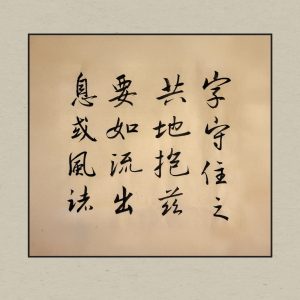 字守住之
共地抱茲
要如流出
息或風諸